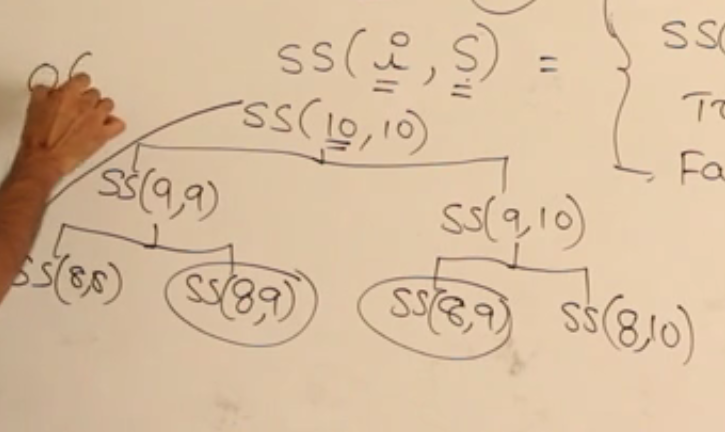 SS(i, S) = { SS(
SS(10, 10)
T
Fa
SS(9,9)
SS(9,10)
SS(8,8) SS(8,9) SS(8,9) SS(8,10)